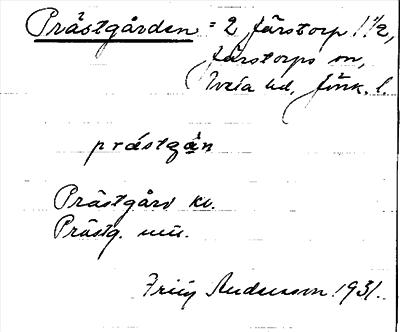 Prästgården = 2 Järstorp 1 1/2,
Järstorps sn,
Tveta hd, Jönk. l.
prástgạ̊n
Prästgård kv.
Prästg. mu.
Andersson 1931.